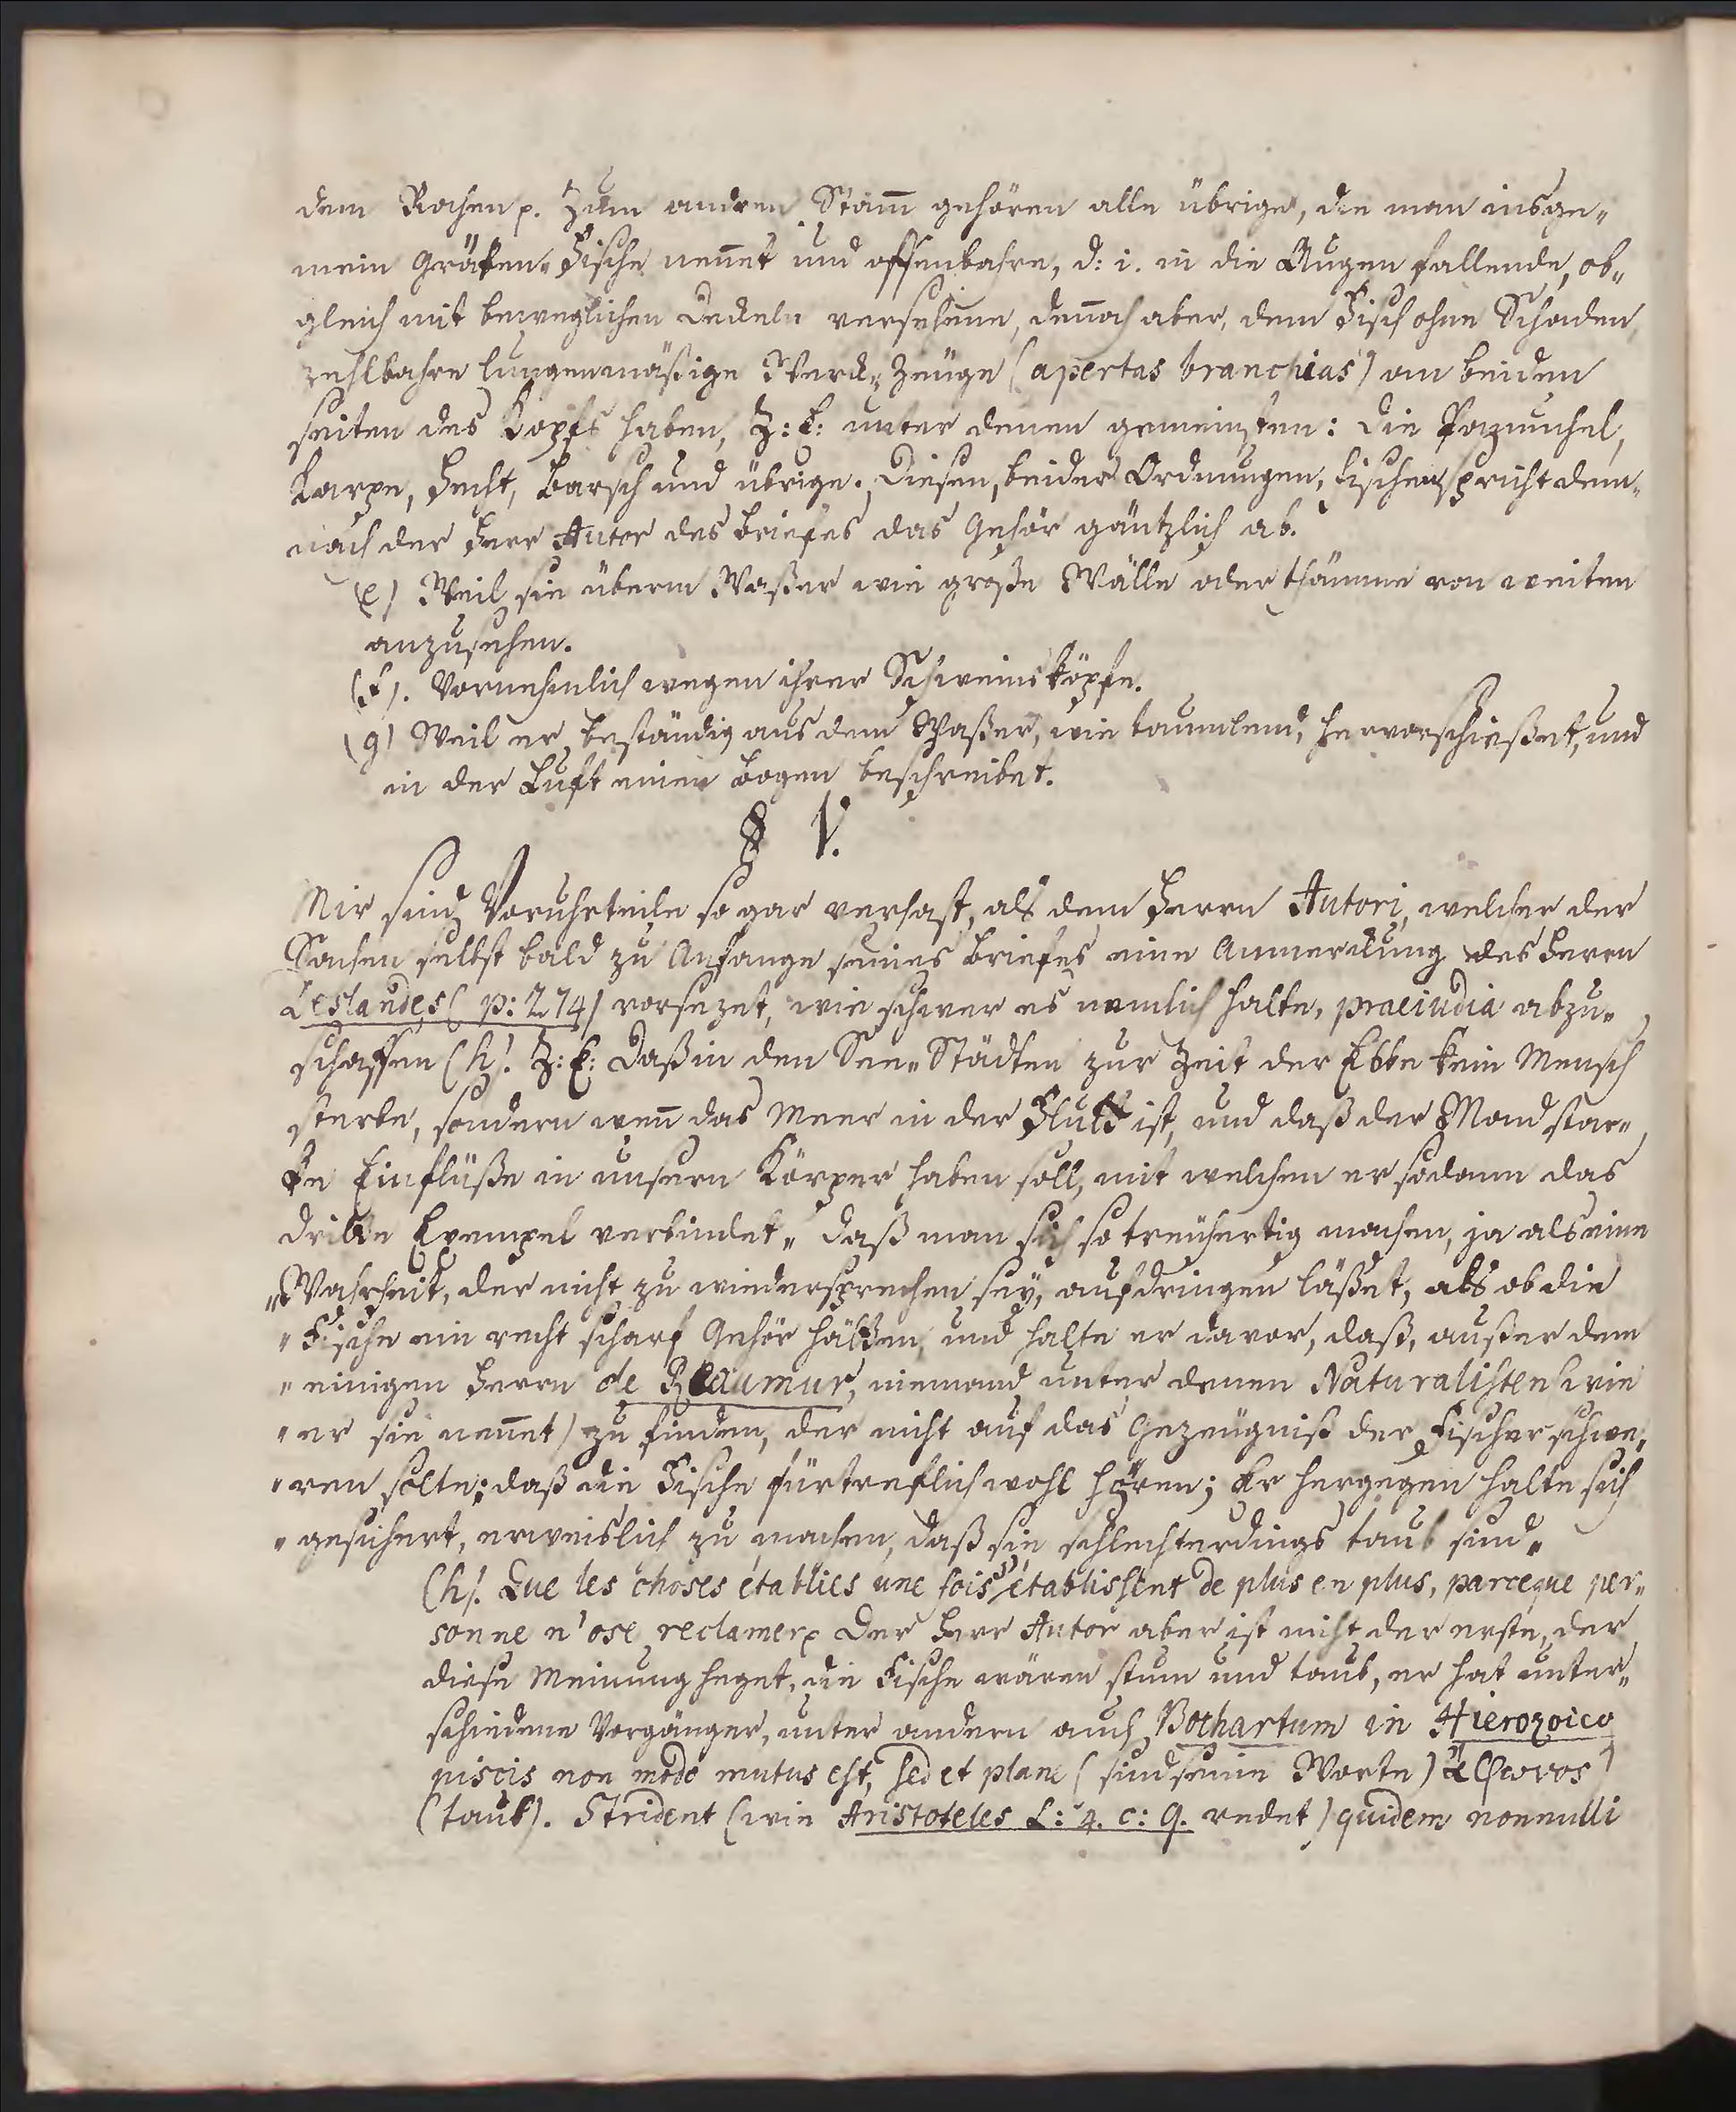 dem Rochen p. Zum andren Stam̄ gehören alle übrige, die man insge„
mein Gräten„Fische nen̄et und offenbahre, d: i. in die Augen fallende, ob„
gleich mit beweglichen Deckeln versehene, den̄och aber, dem Fisch ohne Schaden,
zehlbahre lungenmäßige Werck„Zeüge (apertas branchias) an beiden
seiten des Kopfs haben, Z: E: unter denen gemeinsten: die Pomuchel,
Karpe, Hecht, Barsch und übrige. Diesen, beider Ordnungen, Fischen spricht dem„
nach der Herr Autor des Briefes das Gehör gäntzlich ab.
(e) Weil sie überm Waßer wie große Wälle oder thürme von weiten
anzusehen.
(f). Vornehmlich wegen ihrer Schweinsköpfe.
(g) Weil er beständig aus dem Waßer, wie taumlend, hervorschießet, und
in der Luft einen Bogen beschreibet.
§ V.
Mir sind Voruhrteile so gar verhast, als dem Herrn Autori, welcher der
Sachen selbst bald zu Anfange seines Briefes eine Anmerckung des Herrn
Deslandes (p: 274) vorsezet, wie schwer es nemlich halte, praeiudia abzu„
schaffen (h). Z: E: Daß in den See„Städten zur Zeit der Ebbe kein Mensch
sterbe, sondern wen̄ das Meer in der Fluth ist, und daß der Mond star„
ke Einflüße in unsern Körper haben soll, mit welchen er sodann das
dritte Exempel verbindet „ daß man sich so treühertig machen, ja als eine
„Wahrheit, der nicht zu wiedersprechen sey, aufdringen läßet, als ob die
„ Fische ein recht scharf Gehör hätten, und halte er davor, daß, außer dem
„ einigen Herrn de Reaumur, niemand unter denen Naturalisten (wie
„ er sie nen̄et) zu finden, der nicht auf das Gezeügniß der Fischer schwe„
„ ren solte; daß die Fische fürtreflich wohl hören; Er hergegen halte sich
„ gesichert, erweislich zu machen, daß sie schlechterdings taub sind„
(h). Que les choses établies une fois s'établissent de plus en plus, parceque per„
sonne n'ose reclamer p Der Herr Autor aber ist nicht der erste, der
diese Meinung heget, die Fische wären stum und taub, er hat unter„
schiedene Vorgänger, unter andern auch Bochartum in Hierozoico
piscis non modo mutus est, sed et plane (sind seine Worte)
(taub). Strident (wie Aristoteles L: 4. c: 9. redet) quidem nonnulli